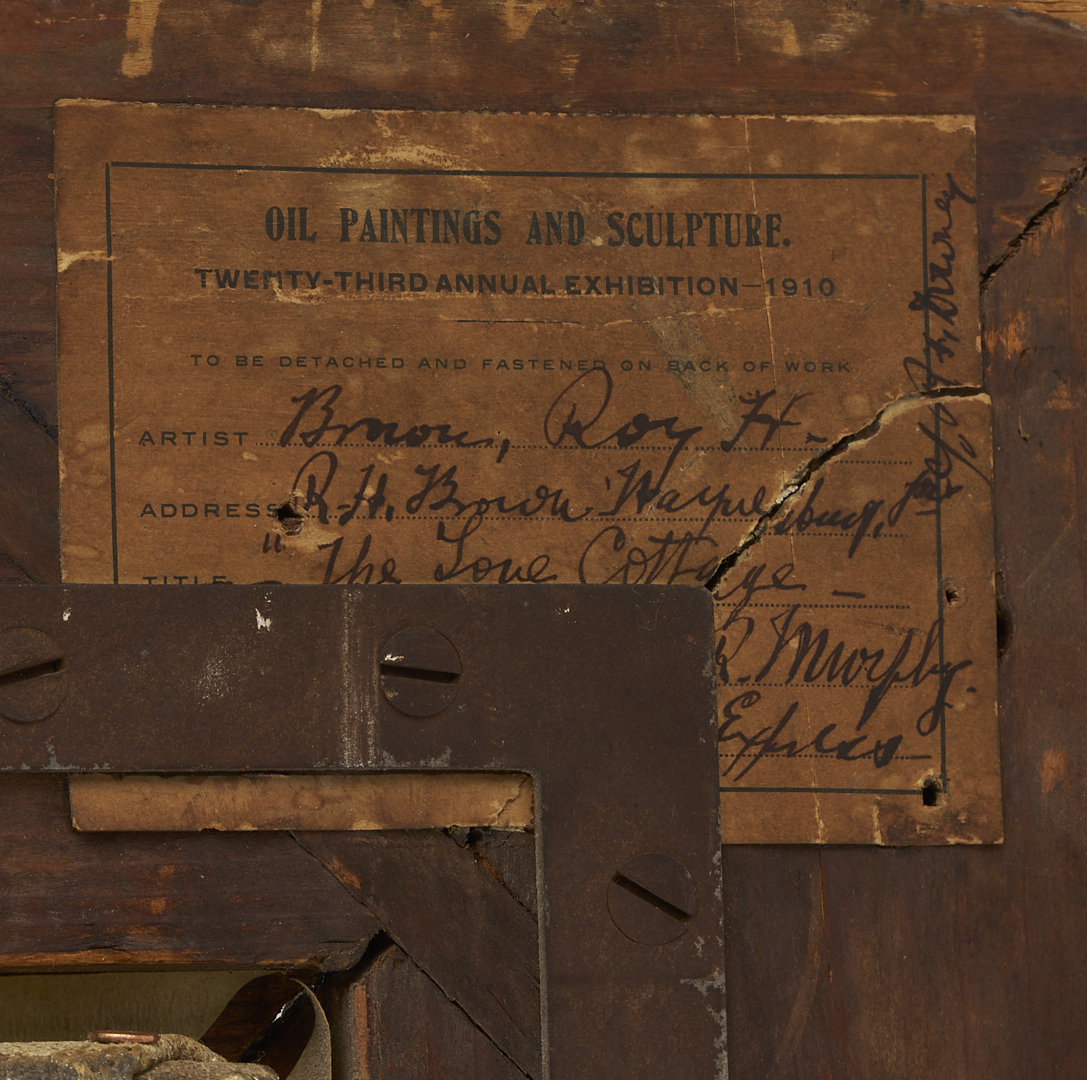 OIL PAINTINGS AND SCULPTURE.
TWENTY-THIRD ANNUAL EXHIBITION—1910
TO BE DETACHED AND FASTENED ON BACK OF WORK
ARTIST Brown, Roy H.
ADDRESS R. H. Brown Waynesburg,
TITLE " The Lone Cottage –
R. Murphy.
Express –